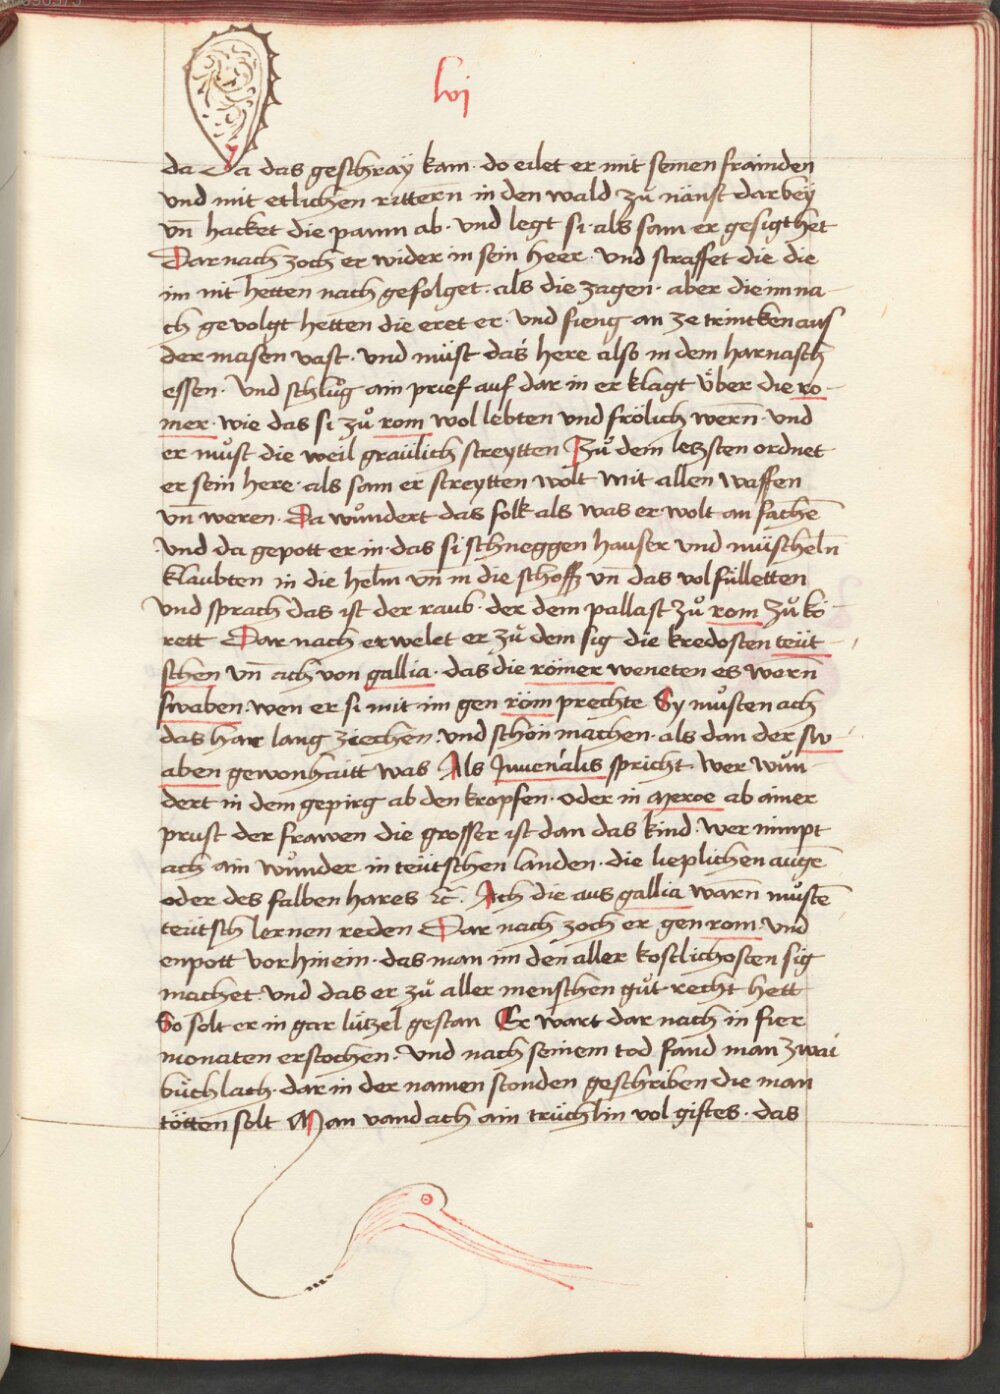 lvj
da Da das geschraÿ kam · do eilet er mit seinen frainden
vnd mit etlichen rittern in den wald · zů nänst darbeÿ
vn̄ hacket die paum ab · vnd legt si · als sam er gesigt het
Dar nach zoch er wider in sein heer · vnd straffet die die
im nit hetten nach gefolget · als die zagen · aber die im na–
ch gevolgt hetten die eret er · vnd fieng an ze trincken aus
der masen vast · vnd müst das here also in dem harnasch
essen · Vnd schlůg ain prief auf dar in er klagt über die ro–
mer · wie das si zů rom wol lebten vnd frölich wern̄ · vnd
er můst die weil graülich streytten Zů dem letzsten ordnet
er sein here · als sam er streytten wolt mit allen waffen
vn̄ weren · Da wůndert das folk als was er wolt an fachē
Vnd da gepott er in · das si schneggen hauser vnd müscheln̄
klaubten in die helm vn̄ in die schoff vn̄ das vol fülletten
Vnd sprach das ist der raub · der dem pallast zů rom zů kö–
rett Dar nach erwelet er zů dem sig die kredosten teüt–
schen vn̄ ach von gallia · das die römer weneten es wern̄
swaben · wen er si mit im gen röm prechte Sy můsten ach
das har lang ziechen · vnd schön machen · als dan der sw–
aben gewonhaitt was Als Juuenalis spricht · wer wün–
dert in dem gepirg ab den kropfen · oder in meroe ab ainer
prust der frawen die grosser ist dan das kind · wer nimpt
ach ain wůnder in teütschen landen · die lieplichen augē
oder des falben hares ⁊c̄ · Ach die aus gallia warn̄ můstē
teütsch lernen reden Dar nach zoch er gen rom · vnd
enpott vorhinein · das man im den aller kostlichosten sig
machet · vnd das er zů aller menschen gůt · recht hett
So solt er in gar lützel gestan Er wart dar nach in fier
monaten erstochen · Vnd nach seinem tod fand man zwai
büchlach · dar in der namen stonden geschriben die man
tötten solt Man vand ach ain trüchlin vol giftes · das